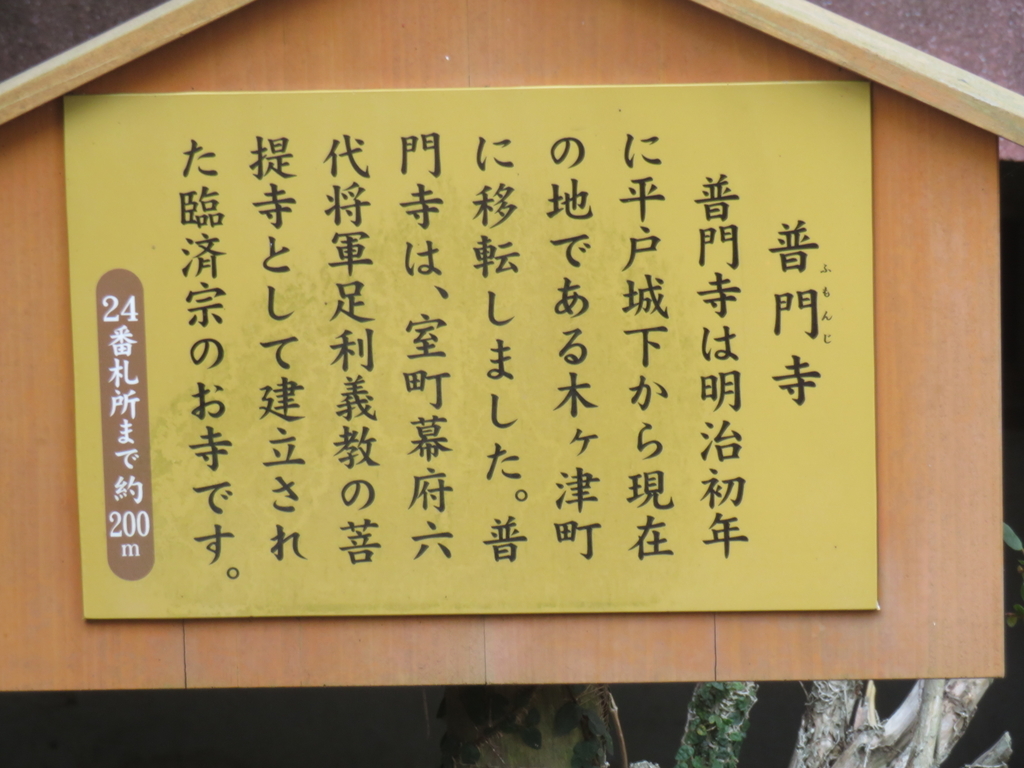 普門寺
ふもんじ
普門寺は明治初年
に平戸城下から現在
の地である木ヶ津町
に移転しました。普
門寺は、室町幕府六
代将軍足利義教の菩
提寺として建立され
た臨済宗のお寺です。
24番札所まで約200m